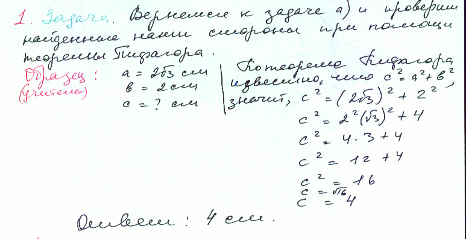 1. Задача. Вернемся к задаче а) и проверим
найденные нами стороны при помощи
теоремы Пифагора.
Образец:
(учитель)
a = 2√3 см
в = 2 см
c = ? см
По теореме Пифагора
известно, что c² = a² + в²,
значит, c² = (2√3)² + 2²
c² = 2²(√3)² + 4
c² = 4 · 3 + 4
c² = 12 + 4
c² = 16
c = √16
c = 4
Ответ: 4 см.